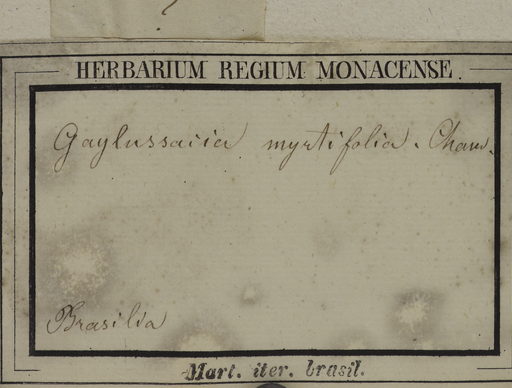 HERBARIUM REGIUM MONACENSE.
Gaylussacia myrtifolia. Cham.
Brasilia
Mart. iter. brasil.